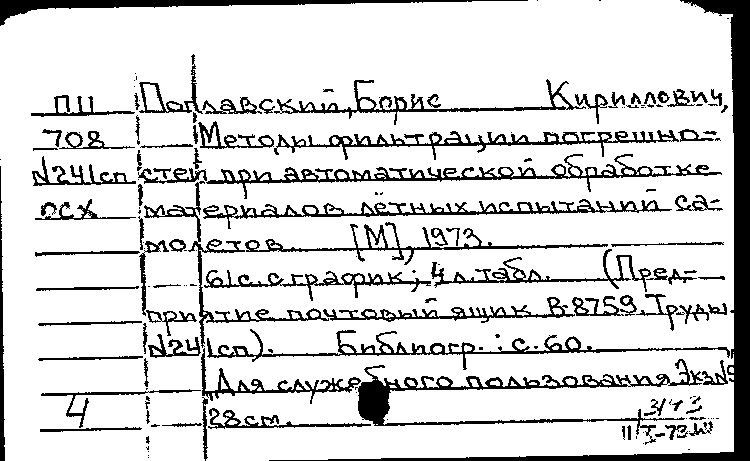 ПЦ Поплавский, Борис Кириллович,
708 Методы фильтрации погрешно-
N241сп стей при автоматической обработке
ОСХ материалов лётных испытаний са-
молетов. [М], 1973.
61с. с график; 4 л. табл. (Пред-
приятие почтовый ящик В-8759. Труды.
N241сп). Библиогр.: с. 60.
"Для служебного пользования. Экз N
4 28 см.